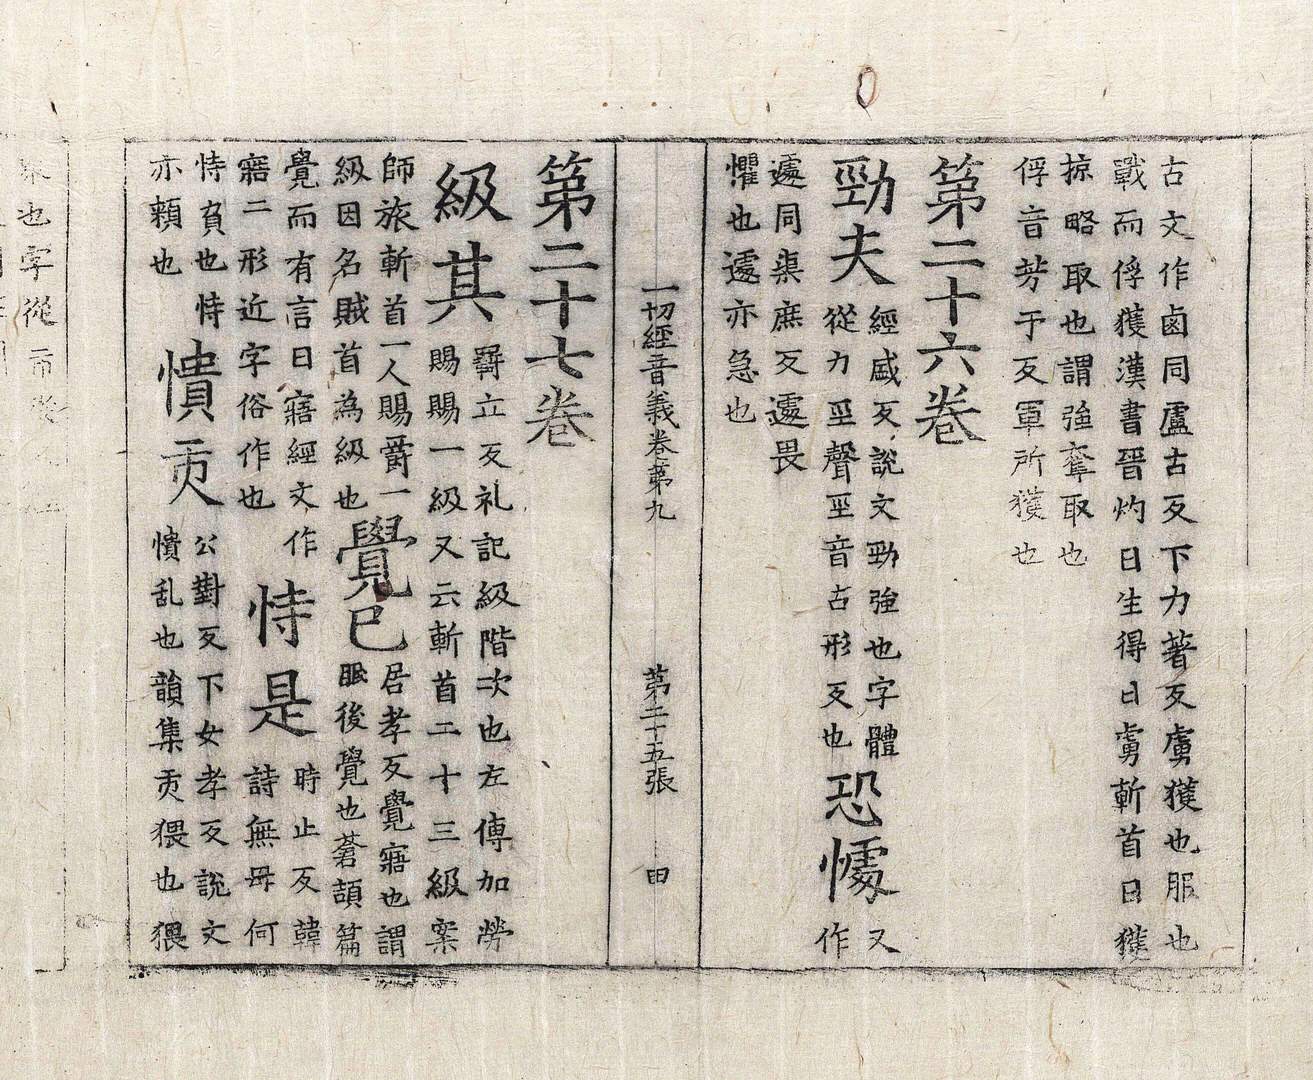 古文作鹵同盧古反下力著反虜獲也服也
戰而俘獲漢書晉灼曰生得曰虜斬首曰獲
掠略取也謂強奪取也
俘音芳于反軍所獲也
第二十六卷
勁夫
經盛反說文勁強也字體
從力巠聲巠音古形反也
恐懅
又作
遽同渠庶反遽畏
懼也遽亦急也
一切經音義卷第九
第二十五張
田
第二十七卷
級其
羇立反礼記級階次也左傳加勞
賜賜一級又云斬首二十三級案
師旅斬首一人賜爵一
級因名賊首為級也
覺已
居孝反覺寤也謂
眠後覺也蒼頡篇
覺而有言曰寤經文作
寤二形近字俗作也
恃是
時止反韓
詩無母何
恃負也恃
亦賴也
憒𠆸
公對反下女孝反說文
憒乱也韻集𠆸猥也猥
也字從市從人